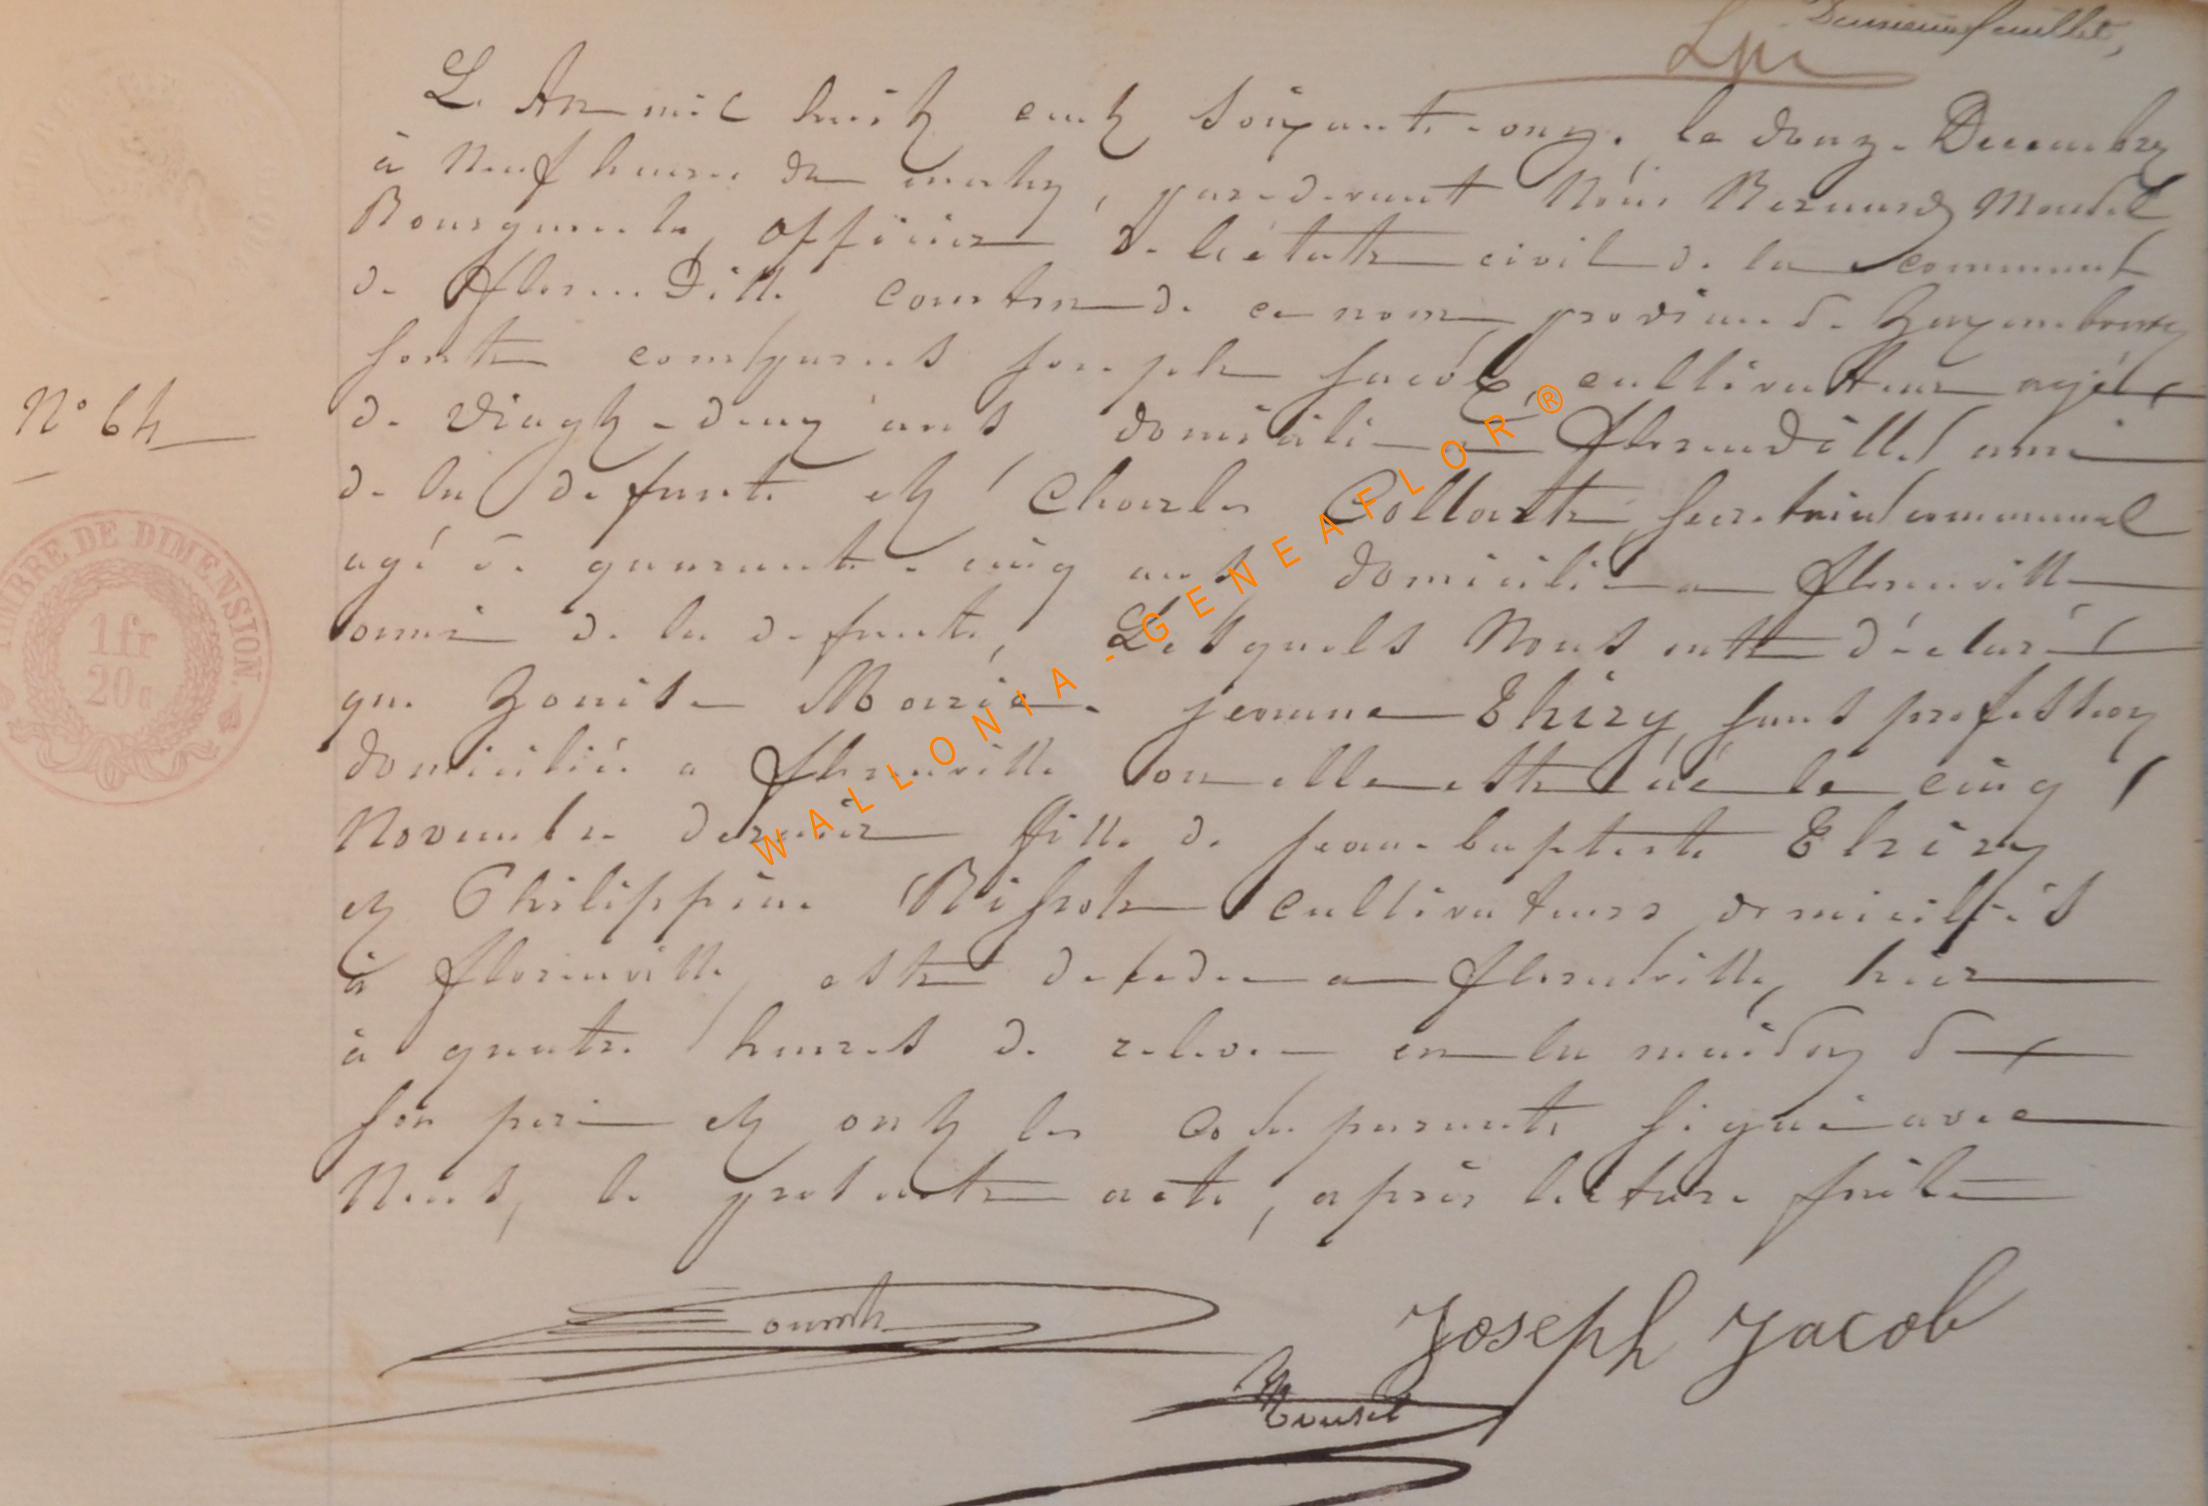 Deuxième feuillet,
L'An mil huit cent soixante-onze, le douze Decembre
à Neuf heures du matin, par-devant Nous Bernard Mousel
Bourgmestre officier de l'état civil de la commune
de Florenville canton de ce nom, province de Luxembourg
sont comparus Joseph Jacob, cultivateur agé
de vingt-deux ans domicilié à Florenville, ami
de la defunte et Charles Collart secretaire communal
agé de quarante-cinq ans domicilié a Florenville
N° 64
ami de la defunte, Lesquels Nous ont déclaré
que Louise Marie jeanne Thiry, sans profession
domiciliée a Florenville ou elle est née le cinq
Novembre dernier fille de jean baptiste Thiry
et Philippine cultivateurs domiciliés
à Florenville, est decedee a Florenville, hier
à quatre heures de relevee en la maison de
son père et ont les comparants signé avec
Nous, le present acte, après lecture faite
TIMBRE DE DIMENSION.
1 fr
20c
Joseph Jacob
Mousel
WALLONIA-GENEAFLOR®